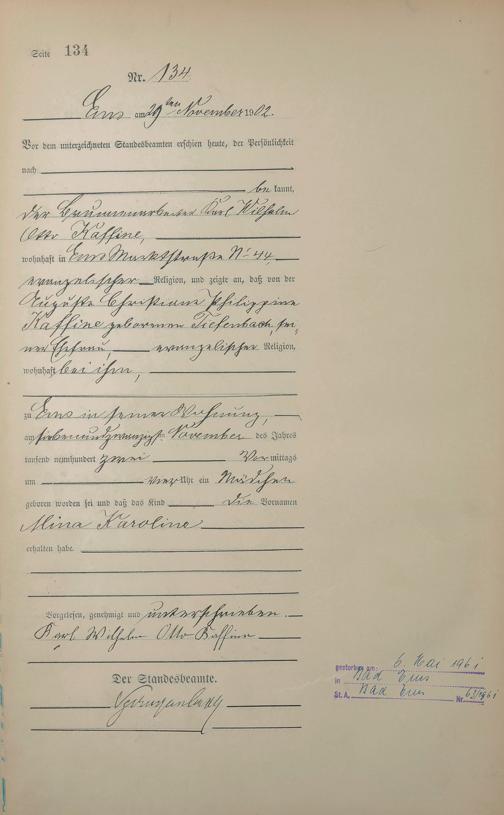 Seite 134
Nr. 134
Ems am 29ten November 1902.
Vor dem unterzeichneten Standesbeamten erschien heute, der Persönlichkeit
nach
be kannt,
der Brunnenarbeiter Karl Wilhelm
Otto Kaffine,
wohnhaft in Ems Marktstraße No 44,
evangelischer Religion, und zeigte an, daß von der
Auguste Christiane Philippine
Kaffine geborenen Tiefenbach, sei-
ner Ehefrau, evangelischer Religion,
wohnhaft bei ihm,
zu Ems in seiner Wohnung,
am siebenundzwanzigsten November des Jahres
tausend neunhundert zwei Vor mittags
um vier Uhr ein Mädchen
geboren worden sei und daß das Kind die Vornamen
Mina Karoline
erhalten habe.
Vorgelesen, genehmigt und unterschrieben.
Karl Wilhelm Otto Kaffine
Der Standesbeamte.
gestorben am: 6. Mai 1961
in Bad Ems
St. A. Bad Ems Nr. 63/1961